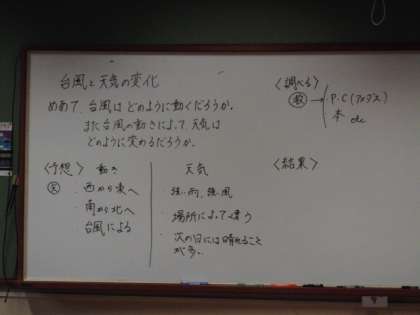 台風と天気の変化
めあて、台風は どのように動くだろうか。
また台風の動きによって、天気は
どのように変わるだろうか。
〈予想〉 動き
・西から東へ
・南から北へ
台風による
天気
強い雨、強い風
・場所によって違う
・次の日には晴れること
が多い。
〈調べる〉
教 → P.C(アメダス)
本
etc
〈結果〉